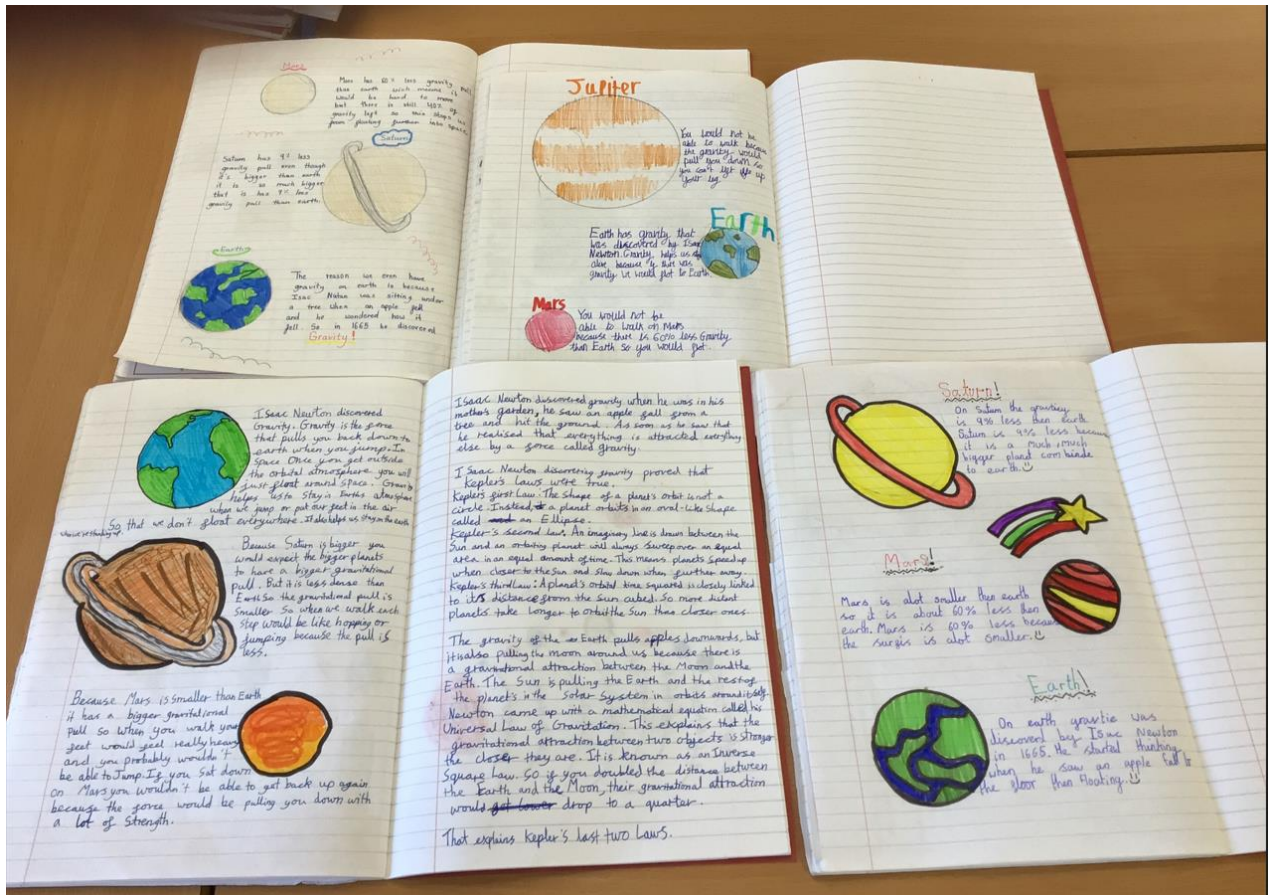 Mars
Mars has 62% less gravity pull
that earth wich means it
would be hard to move
but there is still 48% of
gravity left so this stops us
from floating into space.
Saturn
Saturn has 9% less
gravity pull even though
it's bigger than earth
it is so much bigger
that is has 9% less
gravity pull than earth.
Earth
The reason we even have
gravity on earth is because
Isac Natan was sitting under
a tree when an apple fell
and he wondered how it
fell. So in 1665 he discovered
Gravity!
Jupiter
You would not be
able to walk because
the gravity would
pull you down so
you can't lift up
your leg
Earth
Earth has gravity that
was discovered by Isac
Newton. Gravity helps us
alive because if there was
gravity we would flot to Earth
Mars
You would not be
able to walk on Mars
because there is 60% less Gravity
than Earth so you would flot.
Isaac Newton discovered
Gravity. Gravity is the force
that pulls you back down to
earth when you jump. In
space Once you get outside
the orbital atmosphere you will
just float around space. Gravity
helps us to stay in Earths atmosphere
when we jump or put our feet in the air
So that we don't float everywhere. It also helps us stay on the earth
Because Saturn is bigger you
would expect the bigger planets
to have a bigger gravitational
pull. But it is less dense than
Earth so the gravitational pull is
smaller so when we walk each
step would be like hopping or
jumping because the pull is
less.
Because Mars is smaller than Earth
it has a bigger gravitational
pull so when you walk your
feet would feel really heavy
and you probably wouldn't
be able to Jump. If you Sat down
on Mars you wouldn't be able to get back up again
because the force would be pulling you down with
a lot of Strength.
Isaac Newton discovered gravity when he was in his
mother's garden, he saw an apple fall from a
tree and hit the ground. As soon as he saw that
he realised that everything is attracted everything
else by a force called gravity.
Isaac Newton discovering gravity proved that
Kepler's Laws were true.
Kepler's first Law: The shape of a planet's orbit is not a
circle. Instead, a planet orbits in an oval-like shape
called an Ellipse.
Kepler's second law: An imaginary line is drawn between the
Sun and an orbiting planet will always sweep over an equal
area in an equal amount of time. This means planets speed up
when closer to the Sun and slow down when further away.
Kepler's third Law: A planet's orbital time squared is closely linked
to it's distance from the Sun cubed. So more distent
planets take longer to orbit the Sun than closer ones.
The gravity of the Earth pulls apples downwards, but
it is also pulling the moon around us because there is
a gravitational attraction between the Moon and the
Earth. The Sun is pulling the Earth and the rest of
the planet's in the Solar System in orbits around itself.
Newton came up with a mathematical equation called his
Universal Law of Gravitation. This explains that the
gravitational attraction between two objects is stronger
the closer they are. It is known as an Inverse
Square Law. So if you doubled the distance between
the Earth and the Moon, their gravitational attraction
would got lower drop to a quarter.
That explains Kepler's last two Laws.
Saturn!
On Saturn the gravtiey
is 9% less then earth
Saturn is 9% less because
it is a much, much
bigger planet combinde
to earth.
Mars!
Mars is alot smaller then earth
so it is about 60% less then
earth. Mars is 60% less because
the surfis is alot smaller.
Earth!
On earth gravtie was
discoverd by Isac Newton
in 1665. He started thinking
when he saw an apple fall to
the floor than floating.